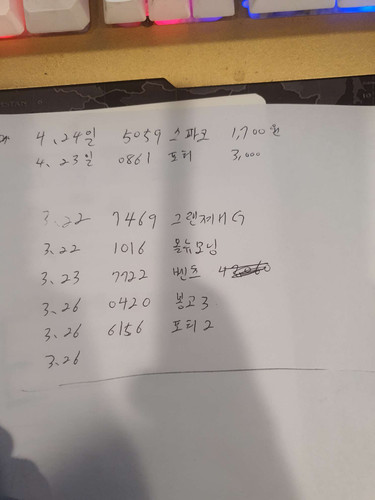 4.24일 5059 스파크 1,700원
4.23일 0861 포터 3,000
3.22 7469 그랜져HG
3.22 1016 올뉴모닝
3.23 7722 벤츠
3.26 0420 봉고3
3.26 6156 포터2
3.26